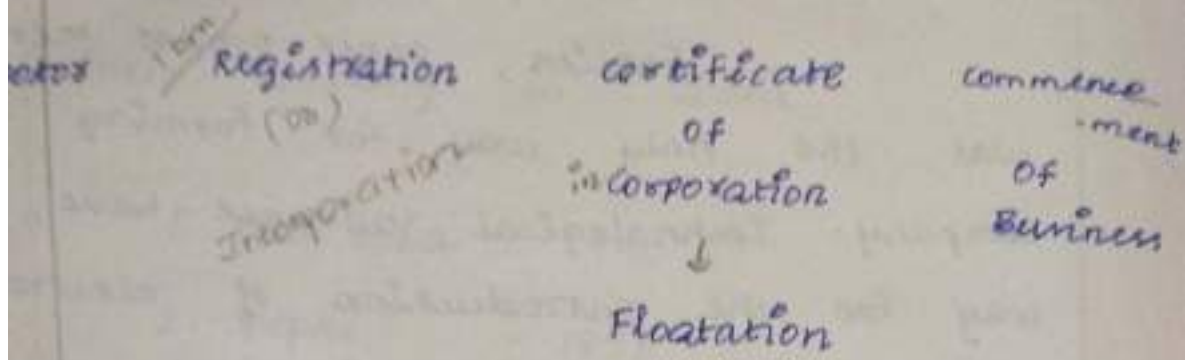 Registration
(OR)
Incorporation
certificate
of
incorporation
↓
Floatation
commence
-ment
of
Business